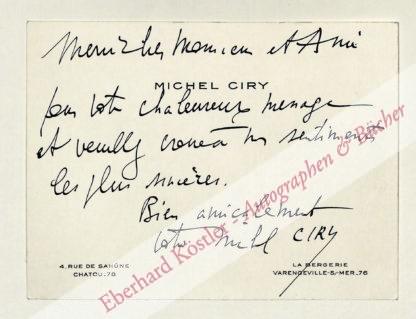 Merci cher Monsieur et Ami
MICHEL CIRY
pour votre chaleureux message
et veuillez croire à mes sentiments
les plus sincères.
Bien amicalement
votre Michel CIRY
4, RUE DE SAHÛNE
CHATOU.78
LA BERGERIE
VARENGEVILLE-S-MER.76
Eberhard Köstler - Autographen & Bücher